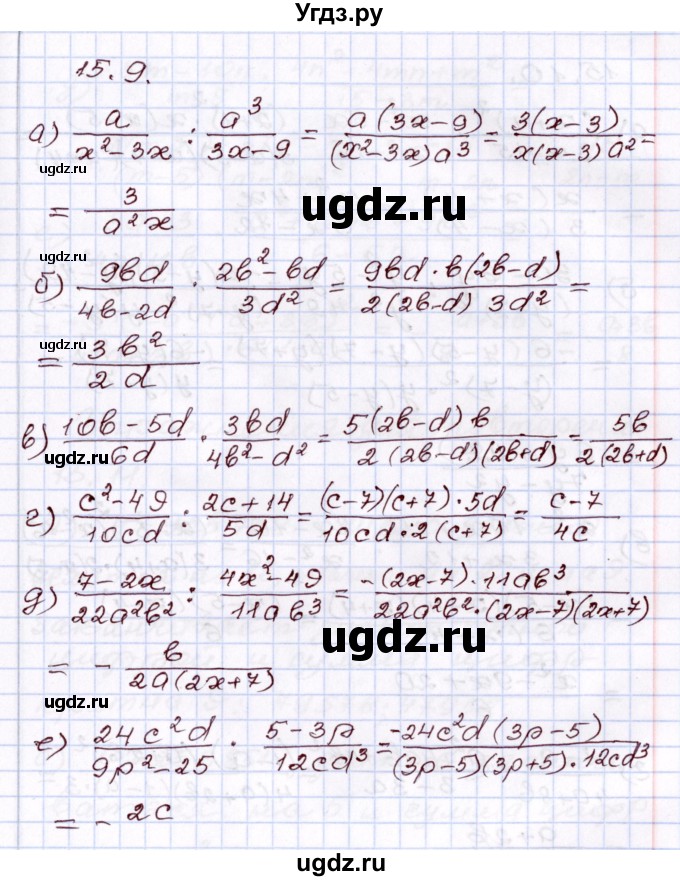 Угдз.ру
15.9.
а) a/(x²-3x) : a³/(3x-9) = a(3x-9)/((x²-3x)a³) = 3(x-3)/(x(x-3)a²) =
ugdz.ru
= 3/(a²x)
ugdz.ru
ugdz.ru
б) 9bd/(4b-2d) · (2b²-bd)/(3d²) = (9bd·b(2b-d))/(2(2b-d) 3d²) =
ugdz.ru
= 3b²/(2d)
в) (10b-5d)/(6d) · 3bd/(4b²-d²) = 5(2b-d)b/(2(2b-d)(2b+d)) = 5b/(2(2b+d))
ugdz.ru
г) (c²-49)/(10cd) : (2c+14)/(5d) = ((c-7)(c+7)·5d)/(10cd·2(c+7)) = (c-7)/(4c)
ugdz.ru
д) (7-2x)/(22a²b²) : (4x²-49)/(11ab³) = (-(2x-7)·11ab³)/(22a²b²·(2x-7)(2x+7))
ugdz.ru
ugdz.ru
= - b/(2a(2x+7))
ugdz.ru
е) 24c²d/(9p²-25) · (5-3p)/(12cd³) = (-24c²d(3p-5))/((3p-5)(3p+5)·12cd³)
ugdz.ru
= - 2c
ugdz.ru
ugdz.ru